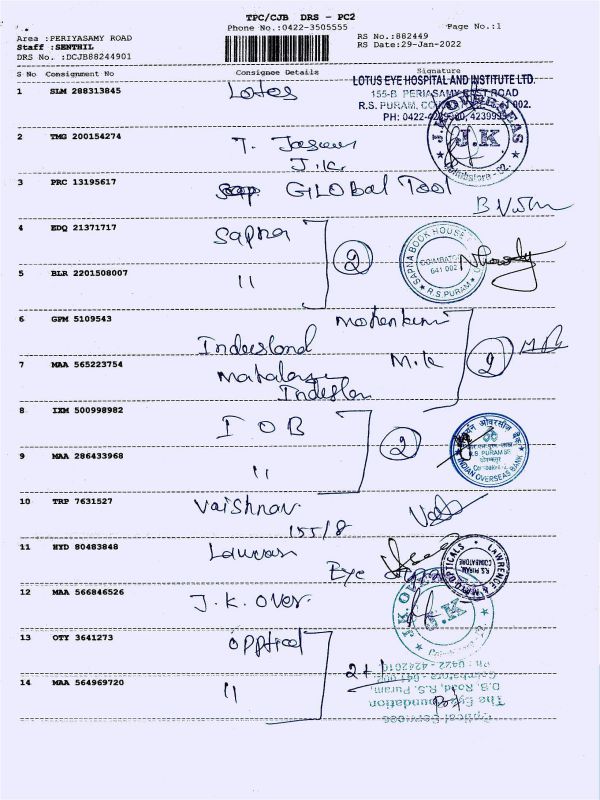 TPC/CJB DRS - PC2
Phone No.:0422-3505555
Page No.:1
Area :PERIYASAMY ROAD
Staff :SENTHIL
DRS No. :DCJB88244901
RS No.:882449
RS Date:29-Jan-2022
S No Consignment No Consignee Details Signature
1 SLM 288313845 Lotos
LOTUS EYE HOSPITAL AND INSTITUTE LTD.
155-B PERIASAMY ROAD
R.S. PURAM, 002.
PH: 0422-
J.K OVERSEAS
J.K
Coimbatore - 02.
2 TMG 200154274 T.
J.K.
3 PRC 13195617 GLOBal Tool
4 EDQ 21371717 Sapna
2
SAPNA BOOK HOUSE
COIMBATORE
641 002
R.S.PURAM
5 BLR 2201508007 "
6 GPM 5109543
Indusland
2
7 MAA 565223754 M.K
8 IXM 500998982 I O B
2
इंडियन ओवरसीज़ बैंक
R.S. PURAM BR
INDIAN OVERSEAS BANK
9 MAA 286433968 "
10 TRP 7631527 Vaishnav
155/8
11 HYD 80483848
Eye
LAWRENCE & MAYO OPTICALS
R.S. PURAM
COIMBATORE
12 MAA 566846526 J.K. Over.
J.K
13 OTY 3641273 Opptical
2+1
14 MAA 564969720 "
Optical Services
The Eye Foundation
D.B. Road, R.S. Puram,
Coimbatore - 641 002
Ph : 0422 - 4242010